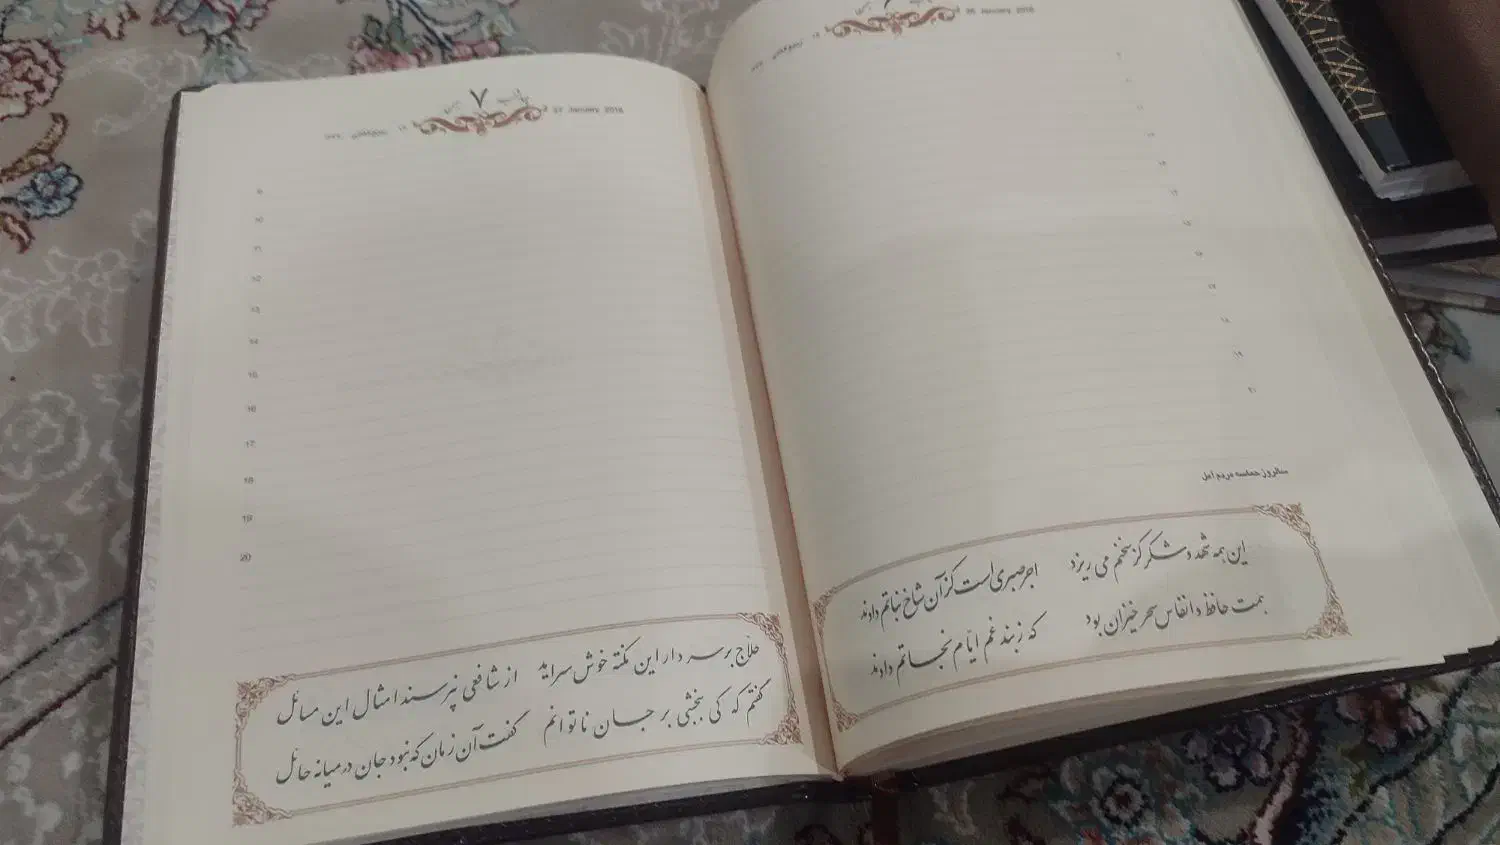 26 January 2018
۱۳
۱۴
۱۵
۱۶
۱۷
۱۸
۱۹
۲۰
سالروز حماسه مردم آمل
این همه شهد و شکر کز سخنم می ریزد اجر صبری است کز آن شاخ نباتم دادند
همت حافظ و انفاس سحر خیزان بود که ز بند غم ایّام نجاتم دادند
۷
27 January 2018
9
10
11
12
13
14
15
16
17
18
19
20
حلّاج بر سر دار این نکته خوش سراید از شافعی نپرسند امثال این مسائل
گفتم که کی ببخشی بر جان ناتوانم گفت آن زمان که نبود جان در میانه حائل